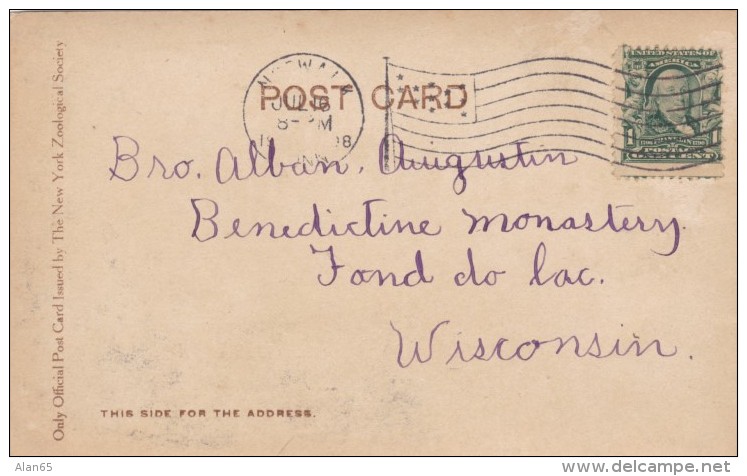 Only Official Post Card Issued by The New York Zoological Society
POST CARD
NORWALK
JUL 16
8- PM
CONN
UNITED STATES OF
AMERICA
1 1
POSTAGE
ONE CENT
Bro. Alban. Auugustin
Benedictine Monastery.
Fond do lac.
Wisconsin.
THIS SIDE FOR THE ADDRESS.
Alan65
www.delcampe.net